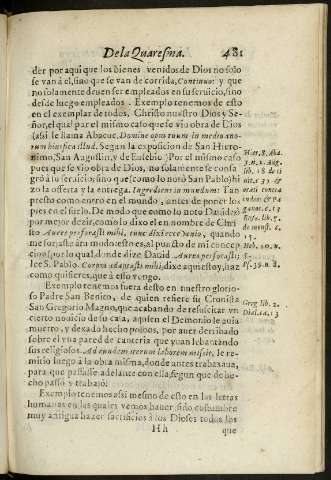 De la Quaresma. 481
der por aqui que los bienes venidos de Dios no solo
se van à el, sino que se van de corrida, Continuo: y que
no solamente deuen ser empleados en su seruicio, sino
desde luego empleados. Exemplo tenemos de esto
en el exemplar de todos, Christo nuestro Dios y Se-
ñor, el qual por el mismo caso que se vio obra de Dios
(assi le llama Abacuc, Domine opus tuum in medio anno-
rum viuifica illud. Segun la exposicion de San Hiero-
nimo, San Augustin, y de Eusebio) Por el mismo caso
pues que se vio obra de Dios, no solamente se consa-
grò à su seruicio, sino que (como lo notò San Pablo) hi-
zo la offerta y la entrega. Ingrediens in mundum: Tan
presto como entrò en el mundo, antes de poner los
pies en el suelo. De modo que como lo nota Dauid, ò
por mejor dezir, como lo dixo el en nombre de Chri-
sto Aures perforasti mihi, tunc dixi ecce Venio, quando
me foraste àra modo: esto es, al puncto de mi concep-
cion; por lo qual donde dize Dauid. Aures perforasti;
lee S. Pablo. Corpus adaptasti mihi, dixo aqui estoy, haz
como quisieres, que à esto vengo.
Exemplo tenemos fuera desto en nuestro glorio-
so Padre San Benito, de quien refiere su Cronista
San Gregorio Magno, que acabando de resuscitar vn
cierto nouicio de su casa, aquien el Demonio le auia
muerto, y dexado hecho pedaços, por auer derribado
sobre el vna pared de canteria que yuan lebantando
sus religiosos. Ad eundem iterum laborem misit, le re-
mitio luego à la obra misma, donde antes trabaxaua,
para que passasse adelante con ella, segun que de he-
cho passò y trabajò.
Exemplo tenemos assi mesmo de esto en las letras
humanas en las quales vemos hauer sido costumbre
muy antigua hazer sacrificios à los Dioses todos los
Hh que
Hier. 8. Aba.
3. n. 2. Aug.
lib. 18 de ci
uit.
Heb. 10. n.
5.
Ps. 39. n. 8.
Greg lib. 2.
Dial. ca. 13